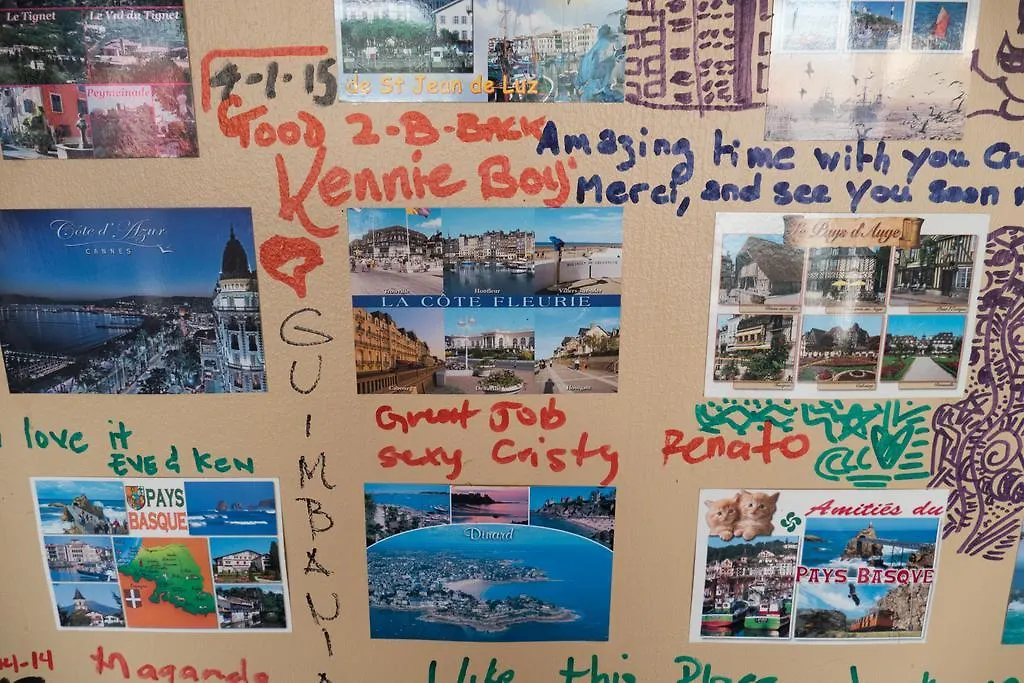 Le Tignet
Le Val du Tignet
Peymeinade
4-1-15
de St Jean de Luz
Good 2-B-Back
Kennie Boy
Amazing time with you
Merci, and see you soon
Côte d'Azur
CANNES
Trouville
Honfleur
LA CÔTE FLEURIE
Cabourg
Deauville
Houlgate
Pays d'Auge
GUIMBAUI
Great Job
sexy Cristy
Renato
love it
EVE & KEN
PAYS
BASQUE
Dinard
Amitiés du
PAYS BASQUE
14-14
Maganda
I like this Place